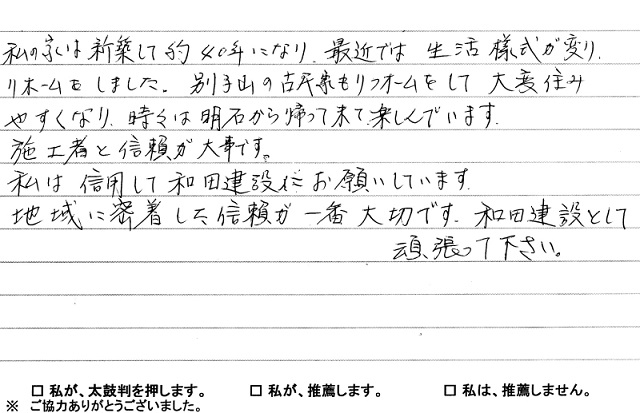 私の家は新築して約40年になり、最近では生活様式が変り、
リホームをしました。別子山の古民家もリフォームをして大変住み
やすくなり、時々は明石から帰って来て楽しんでいます。
施工者と信頼が大事です。
私は信用して和田建設にお願いしています。
地域に密着した信頼が一番大切です。和田建設として
頑張って下さい。
□ 私が、太鼓判を押します。 □ 私が、推薦します。 □ 私は、推薦しません。
※ ご協力ありがとうございました。